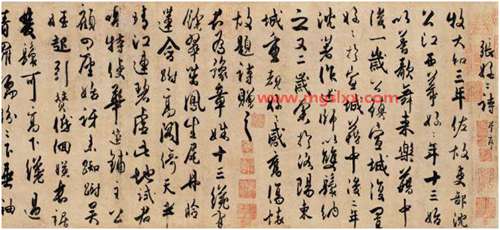 張好好詩并序
牧大和三年佐故吏部沈
公江西幕好好年十三始
以善歌舞來樂籍中
後一歲公鎮宣城復置
好好於宣城籍中後二年
沈著作述師以雙鬟納
之又二歲余於洛陽東
城重覩好好感舊傷懷
故題詩贈之
君為豫章姝十三纔有
餘翠茁鳳生尾丹臉
蓮含跗高閣倚天半
晴江連碧虛此地試君
唱特使華筵鋪主公
顧四座始訝来踟蹰吳
娃起引贊低徊暎長裾
雙鬟可高下纔過
青羅襦盼盼下垂袖